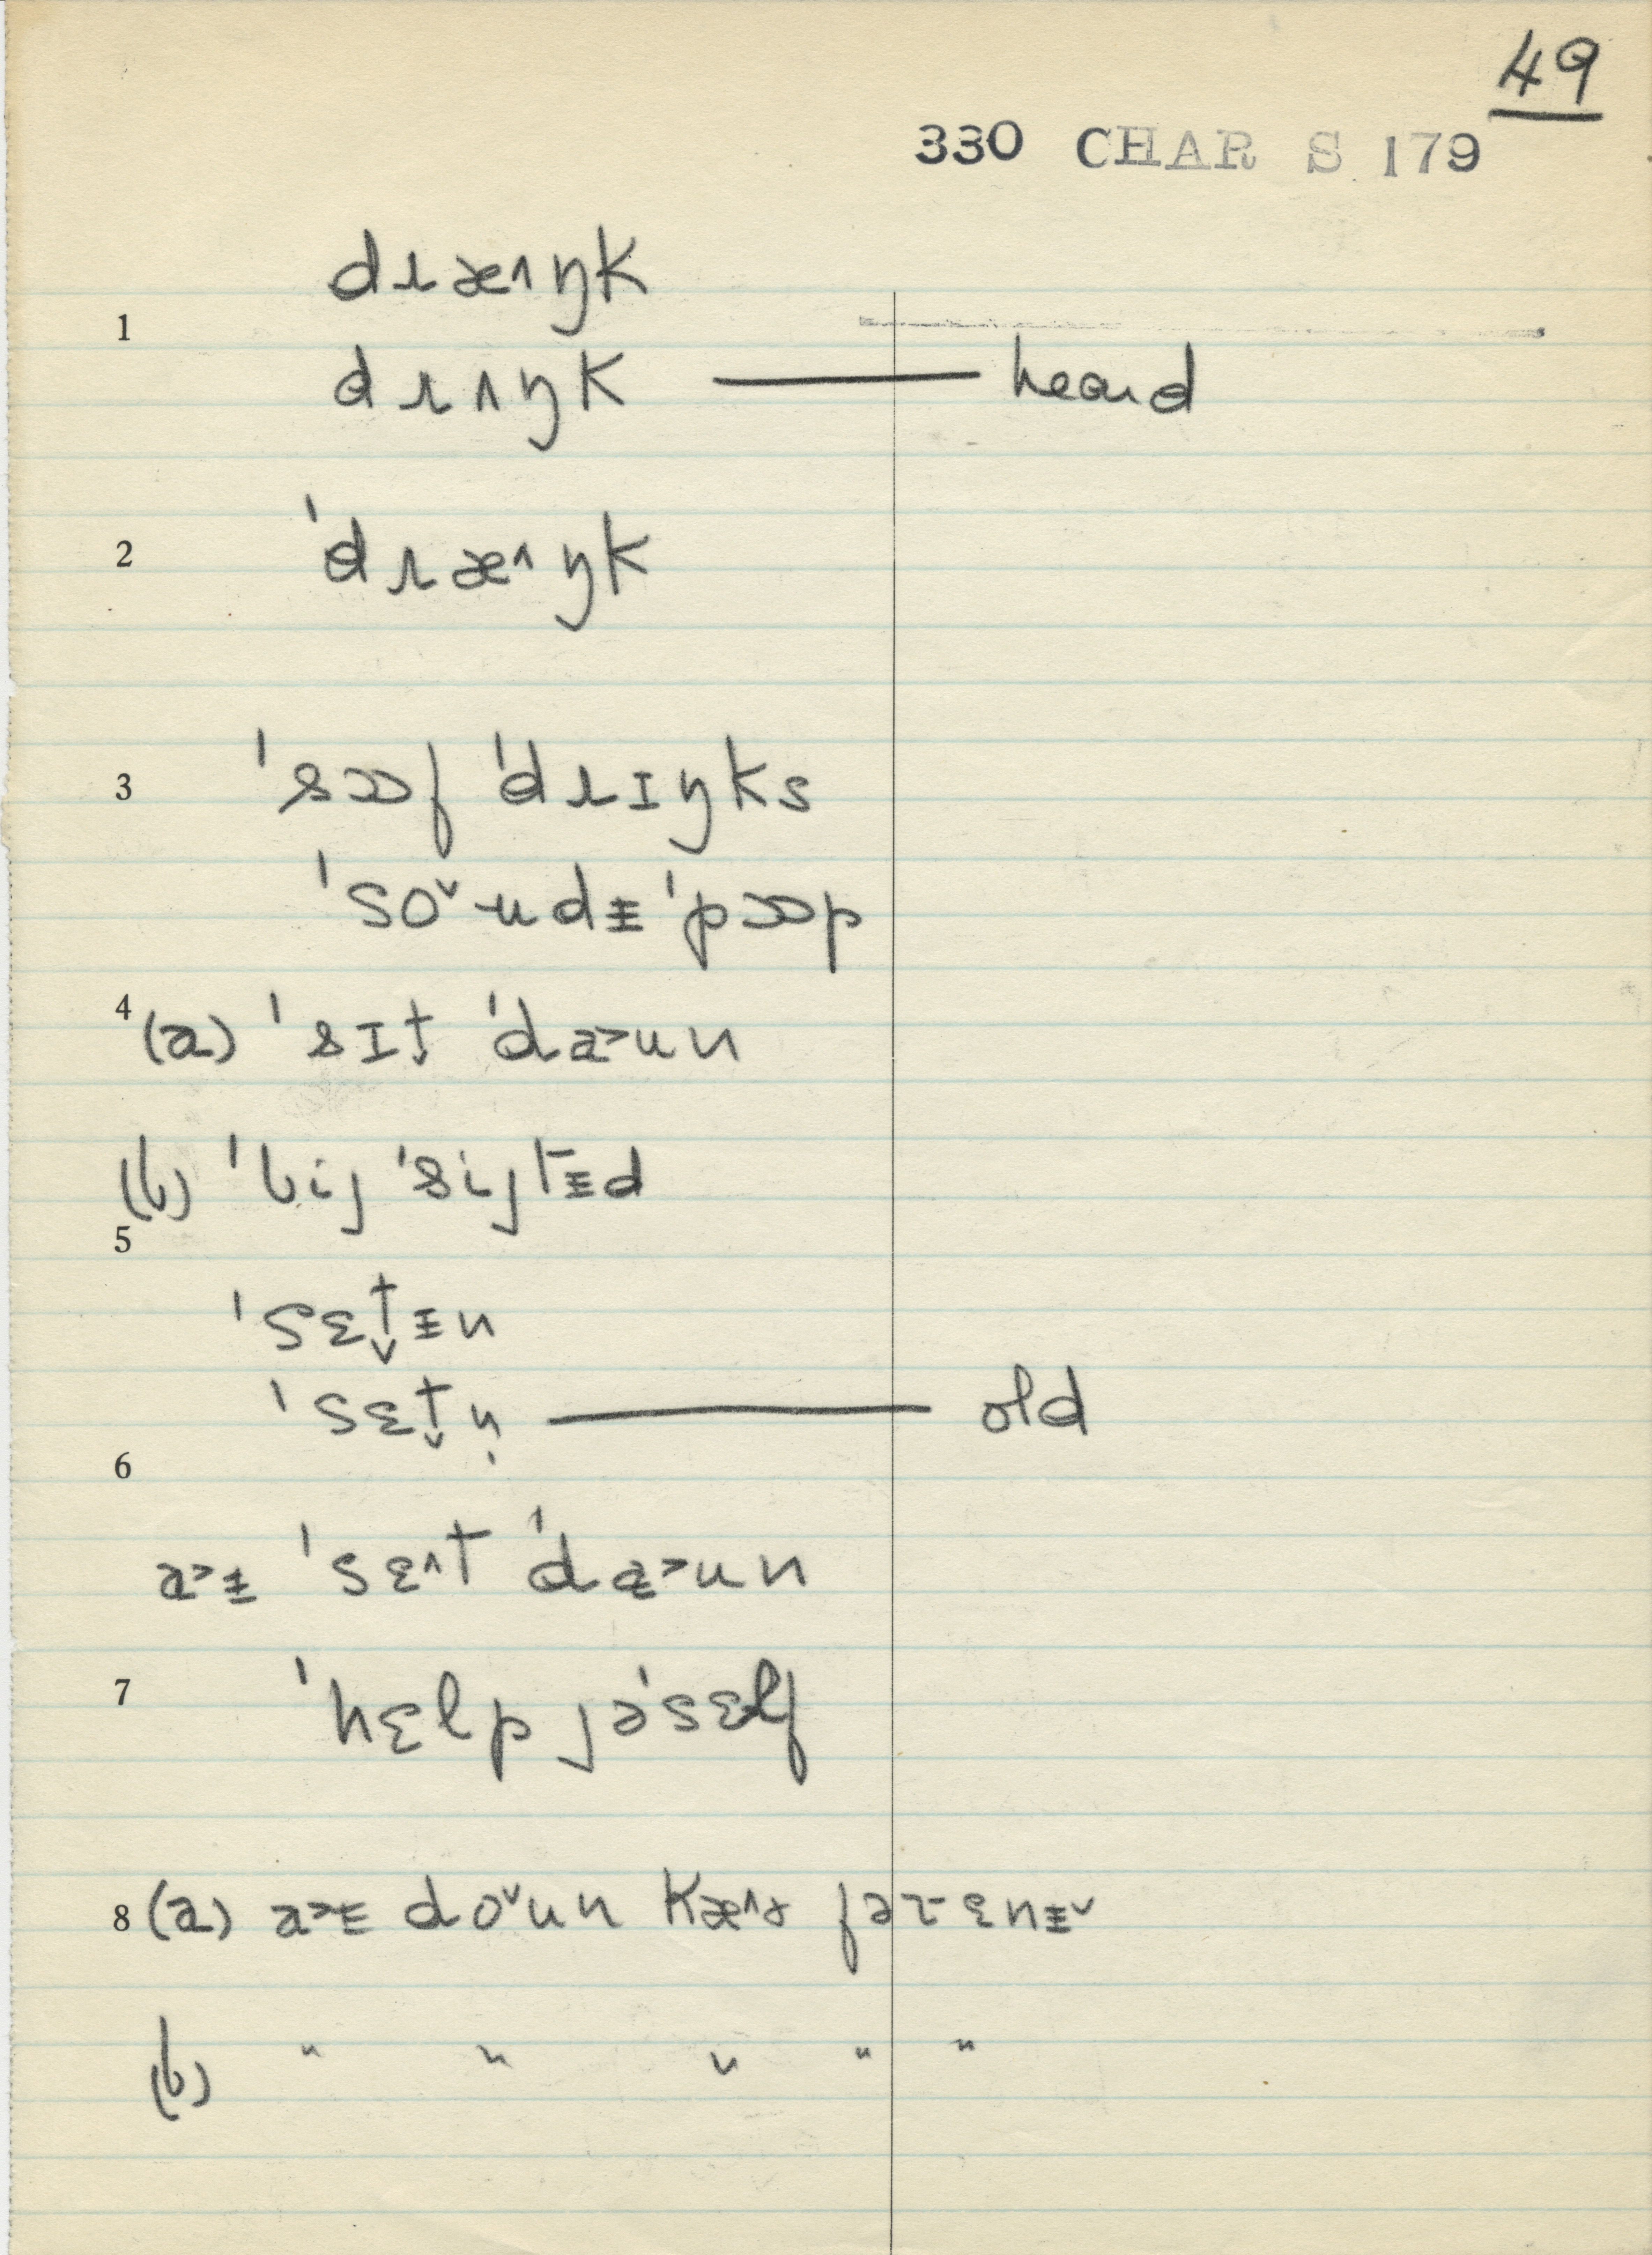 49
330 CHAR S 179
1
dɹæ˄ŋk
dɹʌŋk — heard
2
ˈdɹæ˄ŋk
3
ˈsɔɔf ˈdɹɪŋks
ˈso˅ʉdɪ̵ ˈpɔɔp
4 (a) ˈsɪt̬ ˈda˃un
(b) ˈbij ˈsijtɪ̵d
5
ˈsɛt̬ɪ̵n
ˈsɛt̬n̩ — old
6
a˃ɪ̵ ˈsɛ˄t ˈda˃un
7
ˈhɛlp jəˈsɛlf
8 (a) a˃ɪ̵ do˅un kæ˄ɚ
(b) " " " " "